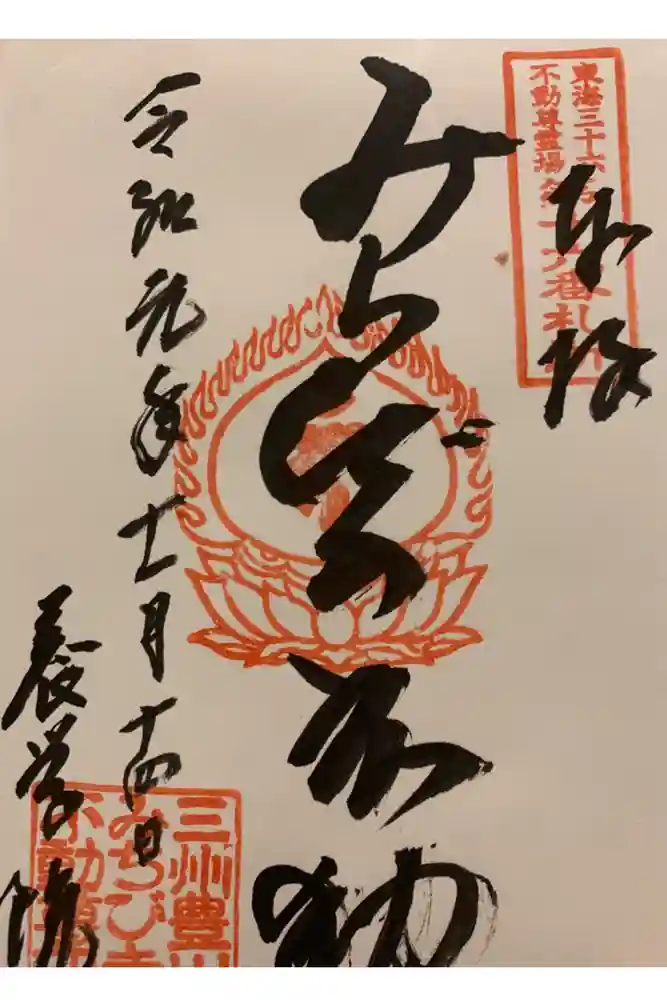 奉拝
東海三十六
不動尊霊場
番札所
みちびき不動
令和元年十一月十四日
養学院
三州豊川
みちびき
不動尊